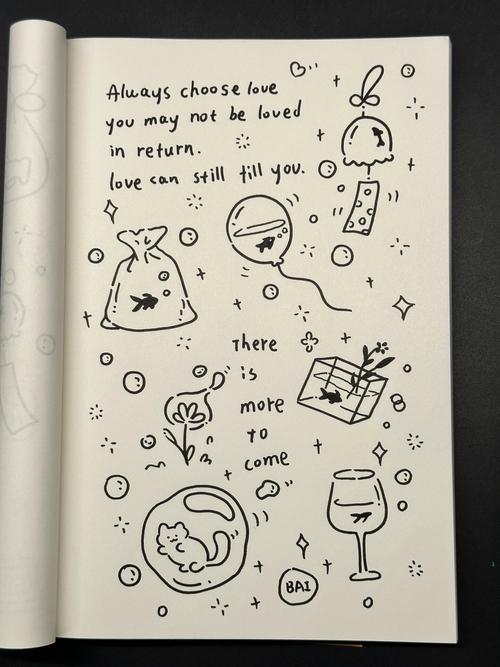 Always choose love
you may not be loved
in return.
love can still fill you.
There
is
more
to
come
BAI